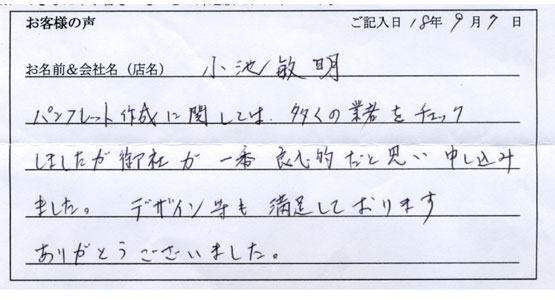 お客様の声 ご記入日 18年 9月 7日
お名前&会社名（店名） 小池敏明
パンフレット作成に関しては、多くの業者をチェック
しましたが御社が一番良心的だと思い申し込み
ました。 デザイン等も満足しております
ありがとうございました。